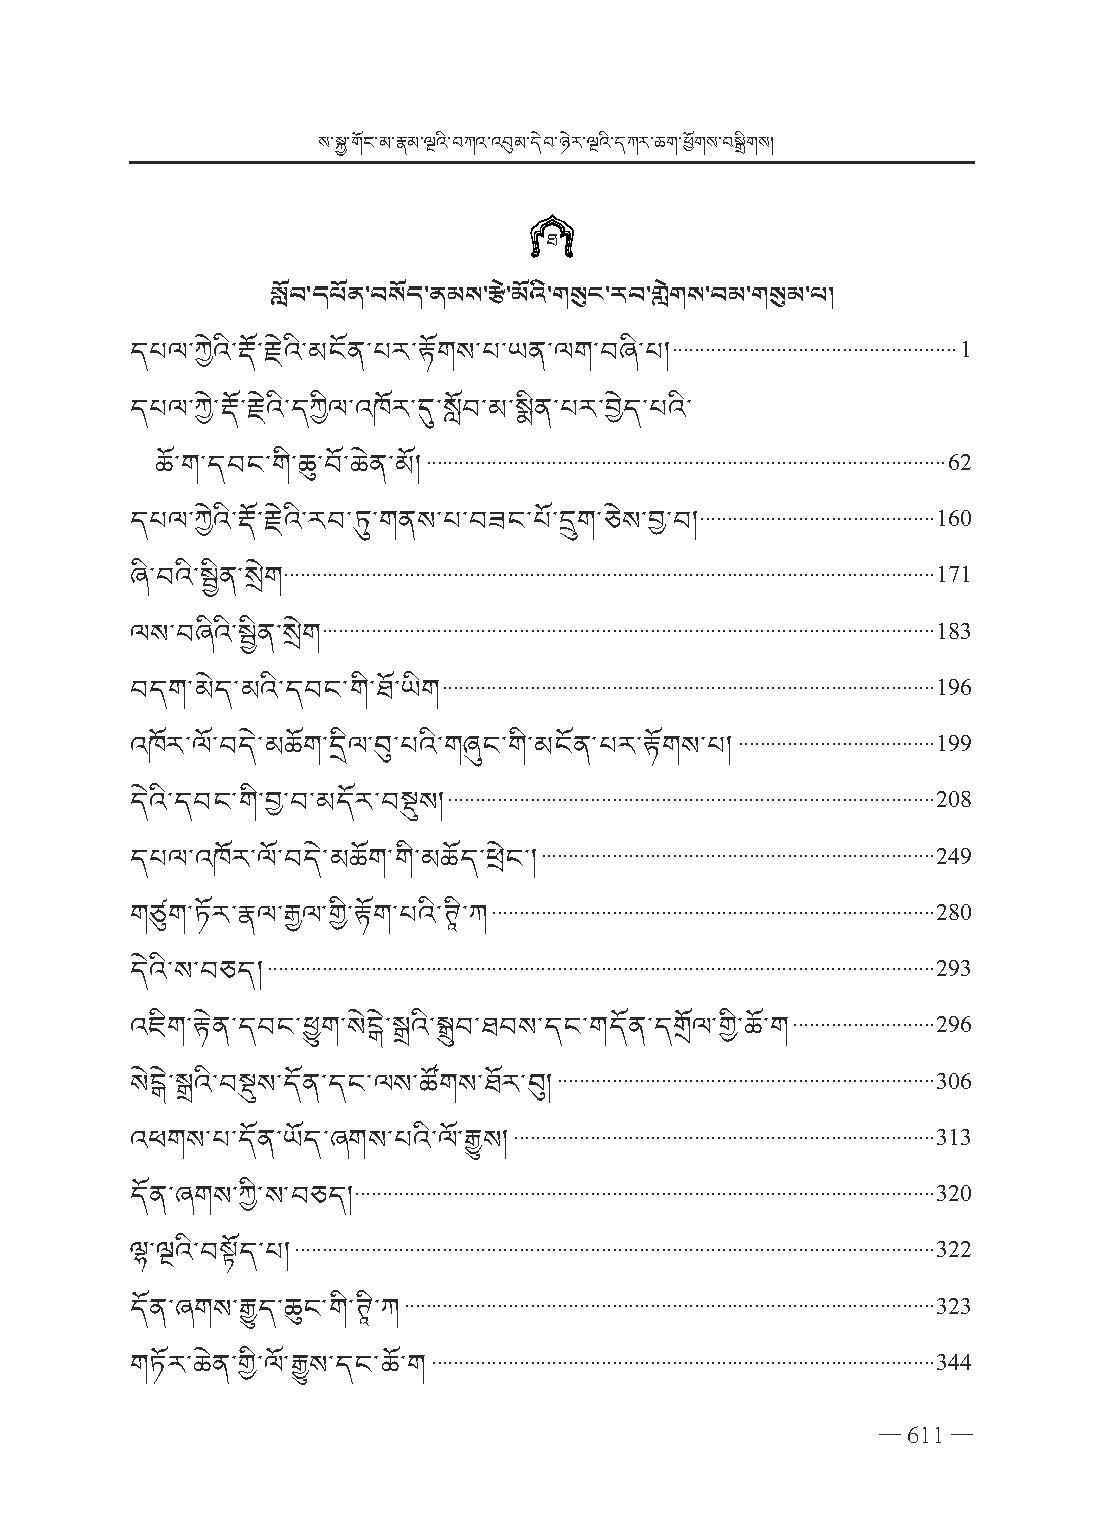 ས་སྐྱ་གོང་མ་རྣམ་ལྔའི་བཀའ་འབུམ་དེབ་ཉེར་ལྔའི་དཀར་ཆག་ཕྱོགས་བསྒྲིགས།
ཐ
སློབ་དཔོན་བསོད་ནམས་རྩེ་མོའི་གསུང་རབ་གླེགས་བམ་གསུམ་པ།
དཔལ་ཀྱེའི་རྡོ་རྗེའི་མངོན་པར་རྟོགས་པ་ཡན་ལག་བཞི་པ། 1
དཔལ་ཀྱེ་རྡོ་རྗེའི་དཀྱིལ་འཁོར་དུ་སློབ་མ་སྨིན་པར་བྱེད་པའི་
ཆོ་ག་དབང་གི་ཆུ་བོ་ཆེན་མོ། 62
དཔལ་ཀྱེའི་རྡོ་རྗེའི་རབ་ཏུ་གནས་པ་བཟང་པོ་དྲུག་ཅེས་བྱ་བ། 160
ཞི་བའི་སྦྱིན་སྲེག 171
ལས་བཞིའི་སྦྱིན་སྲེག 183
བདག་མེད་མའི་དབང་གི་ཐོ་ཡིག 196
འཁོར་ལོ་བདེ་མཆོག་དྲིལ་བུ་པའི་གཞུང་གི་མངོན་པར་རྟོགས་པ། 199
དེའི་དབང་གི་བྱ་བ་མདོར་བསྡུས། 208
དཔལ་འཁོར་ལོ་བདེ་མཆོག་གི་མཆོད་ཕྲེང་། 249
གཙུག་ཏོར་རྣལ་རྒྱལ་གྱི་རྟོག་པའི་ཊཱི་ཀ 280
དེའི་ས་བཅད། 293
འཇིག་རྟེན་དབང་ཕྱུག་སེངྒེ་སྒྲའི་སྒྲུབ་ཐབས་དང་གདོན་དགྲོལ་གྱི་ཆོ་ག 296
སེངྒེ་སྒྲའི་བསྡུས་དོན་དང་ལས་ཚོགས་ཐོར་བུ། 306
འཕགས་པ་དོན་ཡོད་ཞགས་པའི་ལོ་རྒྱུས། 313
དོན་ཞགས་ཀྱི་ས་བཅད། 320
ལྷ་ལྔའི་བསྟོད་པ། 322
དོན་ཞགས་རྒྱུད་ཆུང་གི་ཊཱི་ཀ 323
གཏོར་ཆེན་གྱི་ལོ་རྒྱུས་དང་ཆོ་ག 344
— 611 —